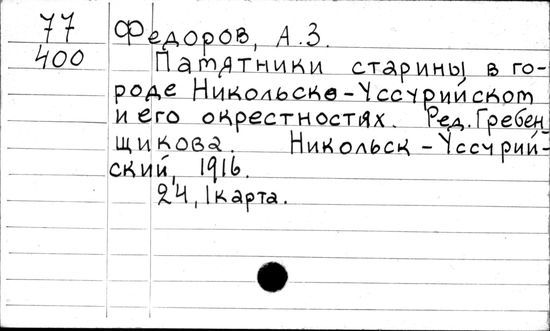 77 Федоров, А.З.
400 Памятники старины в го-
роде Никольске-Уссурийскот
и его окрестностях. Ред. Гребен
щикова. Никольск-Уссурий-
ский, 1916.
24, 1 карта.